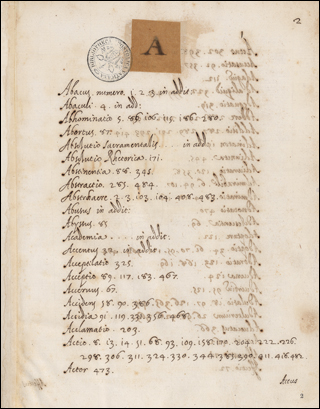 2
A
Abacus, numero, 1. 2. 3. in additis
Abaculi. 4. in add:
Abhominatio 5. 86. 106. 115. 186. 280.
Abortus. 87.
Absolutio Sacramentalis in add:
Absolutio Rhetorica 171.
Abstinentia. 88. 345.
Abstractio. 285. 484.
Abusus in addit:
Abyssus. 85
Academia in addit:
Accentus in additis
Acceptilatio 325.
Acceptio. 89. 117. 183. 467.
Acervus. 67.
Accidens 18. 90.
Accidia 91. 119.
Acclamatio. 203.
Actio. 8. 13. 14. 51. 68. 93. 109. 158. 170. 204. 222. 226.
298. 306. 311. 324. 330. 344. 381. 390. 411. 418. 482
Actor 473.
Actus
2